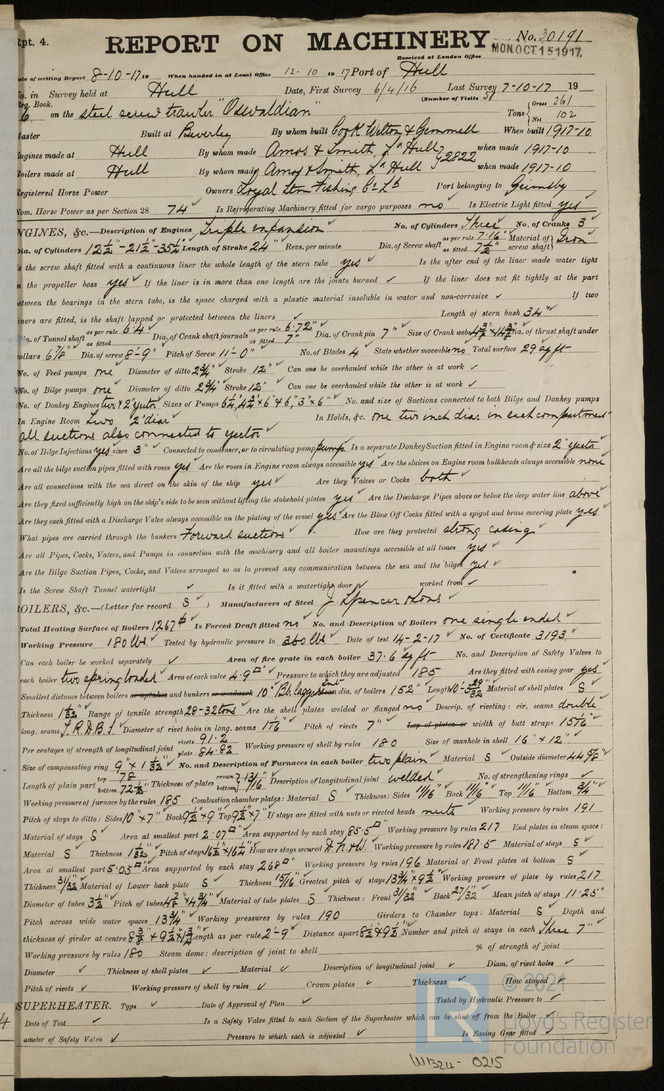 Rpt. 4.
REPORT ON MACHINERY
No. 30191
Received at London Office
MON. OCT. 15 1917.
Date of writing Report 8-10-17 19 When handed in at Local Office 12-10 1917 Port of Hull
No. in Survey held at Hull Date, First Survey 6/4/16 Last Survey 7-10-17 19
Reg. Book. (Number of Visits 59
on the steel screw trawler "Oswaldian" Tons { Gross 261 Net 102
Master Built at Beverley By whom built Cook Welton & Gemmell When built 1917-10
Engines made at Hull By whom made Amos & Smith, Ld Hull when made 1917-10
Boilers made at Hull By whom made Amos & Smith, Ld Hull 2822 when made 1917-10
Registered Horse Power Owners Loyal Stm Fishing Co Ld Port belonging to Grimsby
Nom. Horse Power as per Section 28 74 Is Refrigerating Machinery fitted for cargo purposes no Is Electric Light fitted yes
ENGINES, &c.—Description of Engines Triple expansion No. of Cylinders Three No. of Cranks 3
Dia. of Cylinders 12½"-21½"-35½" Length of Stroke 24" Revs. per minute Dia. of Screw shaft as per rule 7.16" as fitted 7½" Material of screw shaft Iron
Is the screw shaft fitted with a continuous liner the whole length of the stern tube yes Is the after end of the liner made water tight
in the propeller boss yes If the liner is in more than one length are the joints burned ✓ If the liner does not fit tightly at the part
between the bearings in the stern tube, is the space charged with a plastic material insoluble in water and non-corrosive ✓ If two
liners are fitted, is the shaft lapped or protected between the liners ✓ Length of stern bush 34"
Dia. of Tunnel shaft as per rule 6.4 as fitted ✓ Dia. of Crank shaft journals as per rule 6.72" as fitted 7" Dia. of Crank pin 7" Size of Crank webs Dia. of thrust shaft under
collars 6⅞" Dia. of screw 8'-9" Pitch of Screw 11'-0" No. of Blades 4 State whether moveable no Total surface 29 sq ft
No. of Feed pumps one Diameter of ditto 2¾" Stroke 12" Can one be overhauled while the other is at work ✓
No. of Bilge pumps one Diameter of ditto 2¾" Stroke 12" Can one be overhauled while the other is at work ✓
No. of Donkey Engines two & 2" ejector Sizes of Pumps No. and size of Suctions connected to both Bilge and Donkey pumps
In Engine Room Two 2" diar In Holds, &c. one two inch diar in each compartment
all suctions also connected to ejector
No. of Bilge Injections yes sizes 3" Connected to condenser, or to circulating pump pump Is a separate Donkey Suction fitted in Engine room & size 2" ejector
Are all the bilge suction pipes fitted with roses yes Are the roses in Engine room always accessible yes Are the sluices on Engine room bulkheads always accessible none
Are all connections with the sea direct on the skin of the ship yes Are they Valves or Cocks both
Are they fixed sufficiently high on the ship's side to be seen without lifting the stokehold plates yes Are the Discharge Pipes above or below the deep water line above
Are they each fitted with a Discharge Valve always accessible on the plating of the vessel yes Are the Blow Off Cocks fitted with a spigot and brass covering plate yes
What pipes are carried through the bunkers Forward suctions How are they protected strong casing
Are all Pipes, Cocks, Valves, and Pumps in connection with the machinery and all boiler mountings accessible at all times yes
Are the Bilge Suction Pipes, Cocks, and Valves arranged so as to prevent any communication between the sea and the bilges yes
Is the Screw Shaft Tunnel watertight ✓ Is it fitted with a watertight door ✓ worked from ✓
BOILERS, &c.—(Letter for record S ) Manufacturers of Steel J Spencer & Sons
Total Heating Surface of Boilers 1267 Is Forced Draft fitted no No. and Description of Boilers one single ended
Working Pressure 180 lbs Tested by hydraulic pressure to 360 lbs Date of test 14-2-17 No. of Certificate 3193
Can each boiler be worked separately ✓ Area of fire grate in each boiler 37.6 sq ft No. and Description of Safety Valves to
each boiler two spring loaded Area of each valve 4.9 Pressure to which they are adjusted 185 Are they fitted with easing gear yes
Smallest distance between boilers or uptakes and bunkers or woodwork 10" Bkr lagging dia. of boilers 152" Length Material of shell plates S
Thickness 1 5/32 Range of tensile strength 28-32 tons Are the shell plates welded or flanged no Descrip. of riveting: cir. seams double
long. seams T.R.D.B.S. Diameter of rivet holes in long. seams 1 3/16 Pitch of rivets 7" Lap of plates or width of butt straps 15 7/16"
Per centages of strength of longitudinal joint rivets 91.2 plate 84.82 Working pressure of shell by rules 180 Size of manhole in shell 16" x 12"
Size of compensating ring 9" x 1 5/32" No. and Description of Furnaces in each boiler two plain Material S Outside diameter 44⅞"
Length of plain part top 78 bottom 72½" Thickness of plates crown bottom Description of longitudinal joint welded No. of strengthening rings ✓
Working pressure of furnace by the rules 185 Combustion chamber plates: Material S Thickness: Sides 11/16" Back 11/16" Top 11/16" Bottom ¾"
Pitch of stays to ditto: Sides 10" x 7" Back 9½ x 9 Top 9½ x 7 If stays are fitted with nuts or riveted heads nuts Working pressure by rules 191
Material of stays S Area at smallest part 2.07 Area supported by each stay 85.5 Working pressure by rules 217 End plates in steam space:
Material S Thickness 1 5/32 Pitch of stays 16½ x 16½ How are stays secured D.N & W. Working pressure by rules 187.5 Material of stays S
Area at smallest part 5.05 Area supported by each stay 268 Working pressure by rules 196 Material of Front plates at bottom S
Thickness 31/32 Material of Lower back plate S Thickness 15/16" Greatest pitch of stays 13¾" x 9½" Working pressure of plate by rules 217
Diameter of tubes 3½" Pitch of tubes Material of tube plates S Thickness: Front 31/32" Back 27/32" Mean pitch of stays 11.25"
Pitch across wide water spaces 13¾" Working pressures by rules 190 Girders to Chamber tops: Material S Depth and
thickness of girder at centre Length as per rule 2'-9" Distance apart Number and pitch of stays in each Three 7"
Working pressure by rules 180 Steam dome: description of joint to shell % of strength of joint
Diameter ✓ Thickness of shell plates ✓ Material ✓ Description of longitudinal joint ✓ Diam. of rivet holes ✓
Pitch of rivets ✓ Working pressure of shell by rules ✓ Crown plates ✓ Thickness How stayed
SUPERHEATER. Type ✓ Date of Approval of Plan ✓ Tested by Hydraulic Pressure to ✓
Date of Test ✓ Is a Safety Valve fitted to each Section of the Superheater which can be shut off from the Boiler ✓
Diameter of Safety Valve ✓ Pressure to which each is adjusted ✓ Is Easing Gear fitted ✓
© 2021
Lloyd's Register
Foundation
W1324-0215